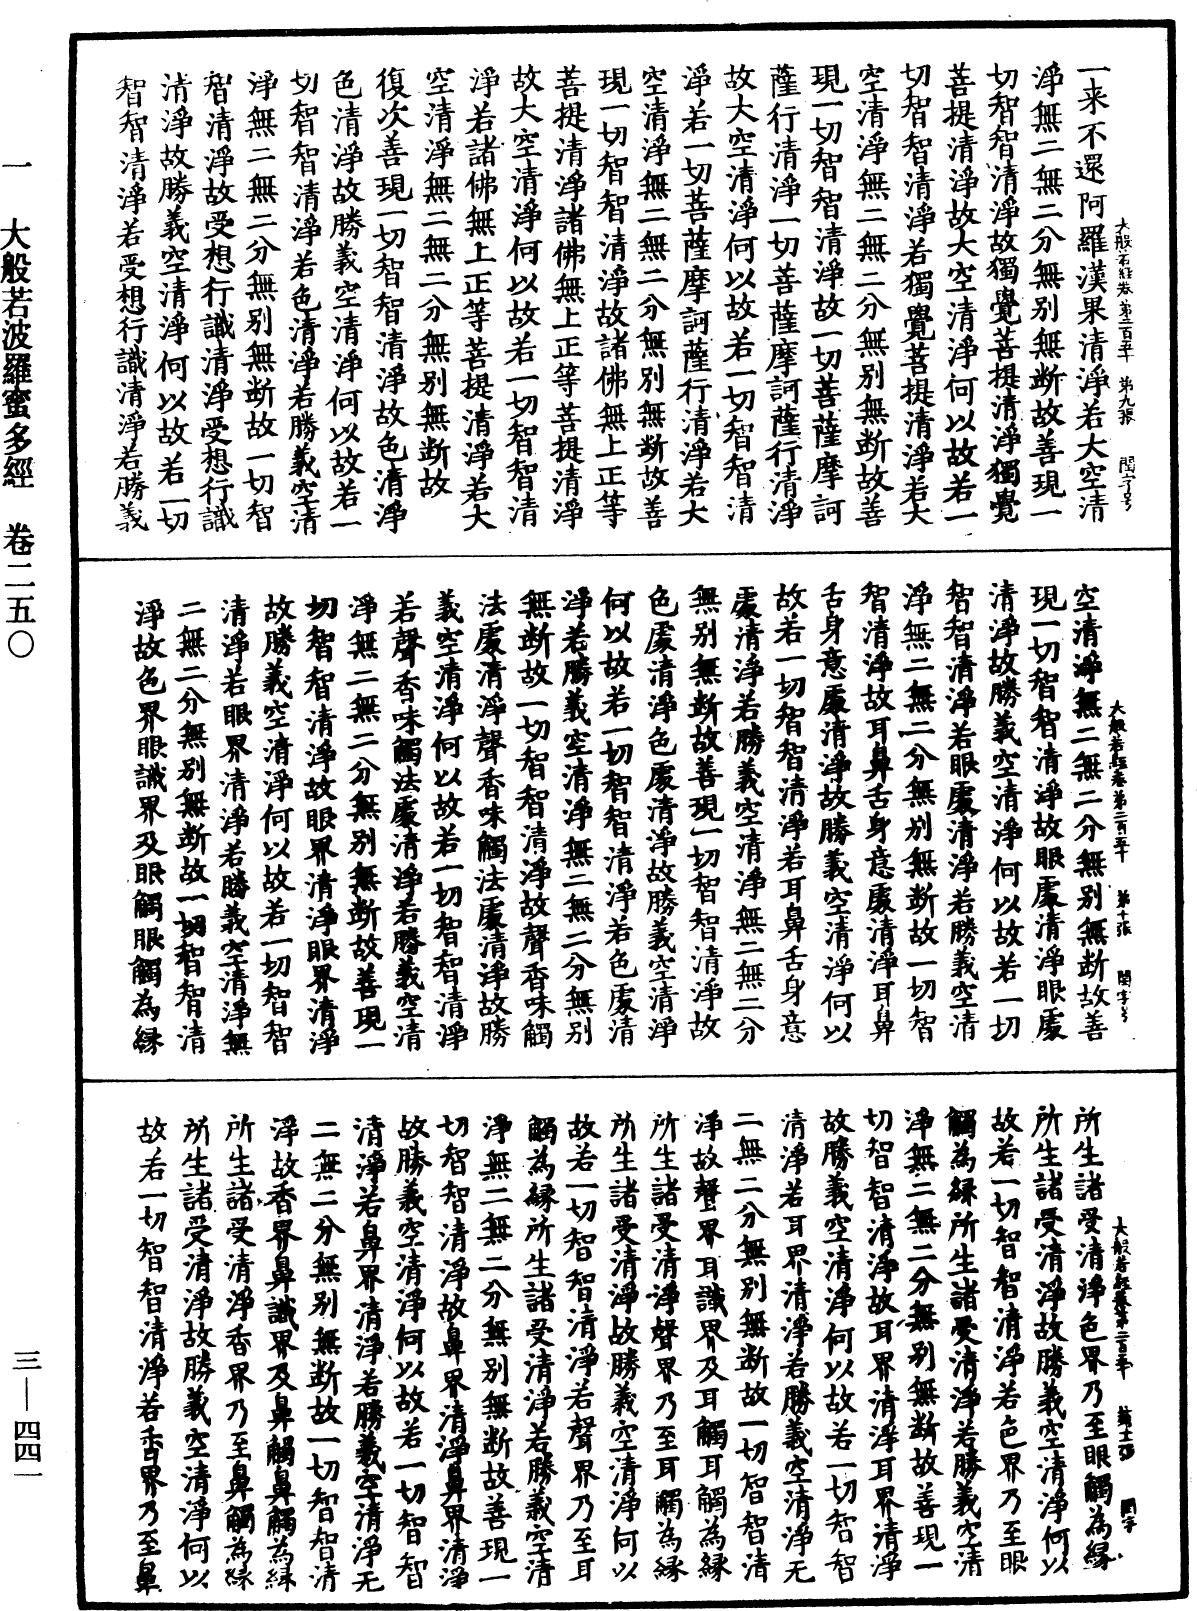 大般若經卷第二百五十　第九張　閏字号
一来不還阿羅漢果清淨若大空清
淨無二無二分無别無断故善現一
切智智清淨故獨覺菩提清淨獨覺
菩提清淨故大空清淨何以故若一
切智智清淨若獨覺菩提清淨若大
空清淨無二無二分無别無断故善
現一切智智清淨故一切菩薩摩訶
薩行清淨一切菩薩摩訶薩行清淨
故大空清淨何以故若一切智智清
淨若一切菩薩摩訶薩行清淨若大
空清淨無二無二分無别無断故善
現一切智智清淨故諸佛無上正等
菩提清淨諸佛無上正等菩提清淨
故大空清淨何以故若一切智智清
淨若諸佛無上正等菩提清淨若大
空清淨無二無二分無别無断故
復次善現一切智智清淨故色清淨
色清淨故勝義空清淨何以故若一
切智智清淨若色清淨若勝義空清
淨無二無二分無别無断故一切智
智清淨故受想行識清淨受想行識
清淨故勝義空清淨何以故若一切
智智清淨若受想行識清淨若勝義
大般若經卷第二百五十　第十張　閏字号
空清淨無二無二分無别無断故善
現一切智智清淨故眼處清淨眼處
清淨故勝義空清淨何以故若一切
智智清淨若眼處清淨若勝義空清
淨無二無二分無别無断故一切智
智清淨故耳鼻舌身意處清淨耳鼻
舌身意處清淨故勝義空清淨何以
故若一切智智清淨若耳鼻舌身意
處清淨若勝義空清淨無二無二分
無别無断故善現一切智智清淨故
色處清淨色處清淨故勝義空清淨
何以故若一切智智清淨若色處清
淨若勝義空清淨無二無二分無别
無断故一切智智清淨故聲香味觸
法處清淨聲香味觸法處清淨故勝
義空清淨何以故若一切智智清淨
若聲香味觸法處清淨若勝義空清
淨無二無二分無别無断故善現一
切智智清淨故眼界清淨眼界清淨
故勝義空清淨何以故若一切智智
清淨若眼界清淨若勝義空清淨無
二無二分無别無断故一切智智清
淨故色界眼識界及眼觸眼觸為緣
大般若經卷第二百五十　第十一張　閏字
所生諸受清淨色界乃至眼觸為緣
所生諸受清淨故勝義空清淨何以
故若一切智智清淨若色界乃至眼
觸為緣所生諸受清淨若勝義空清
淨無二無二分無别無断故善現一
切智智清淨故耳界清淨耳界清淨
故勝義空清淨何以故若一切智智
清淨若耳界清淨若勝義空清淨无
二無二分無别無断故一切智智清
淨故聲界耳識界及耳觸耳觸為緣
所生諸受清淨聲界乃至耳觸為緣
所生諸受清淨故勝義空清淨何以
故若一切智智清淨若聲界乃至耳
觸為緣所生諸受清淨若勝義空清
淨無二無二分無别無断故善現一
切智智清淨故鼻界清淨鼻界清淨
故勝義空清淨何以故若一切智智
清淨若鼻界清淨若勝義空清淨无
二無二分無别無断故一切智智清
淨故香界鼻識界及鼻觸鼻觸為緣
所生諸受清淨香界乃至鼻觸為緣
所生諸受清淨故勝義空清淨何以
故若一切智智清淨若香界乃至鼻
一　大般若波羅蜜多經　卷二五〇
三—四四一